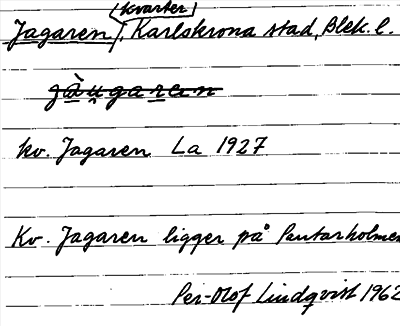 (kvarter)
Jagaren, Karlskrona stad, Blek. l.
kv. Jagaren La 1927
Kv. Jagaren ligger på Pantarholmen
Per-Olof Lindqvist 1962